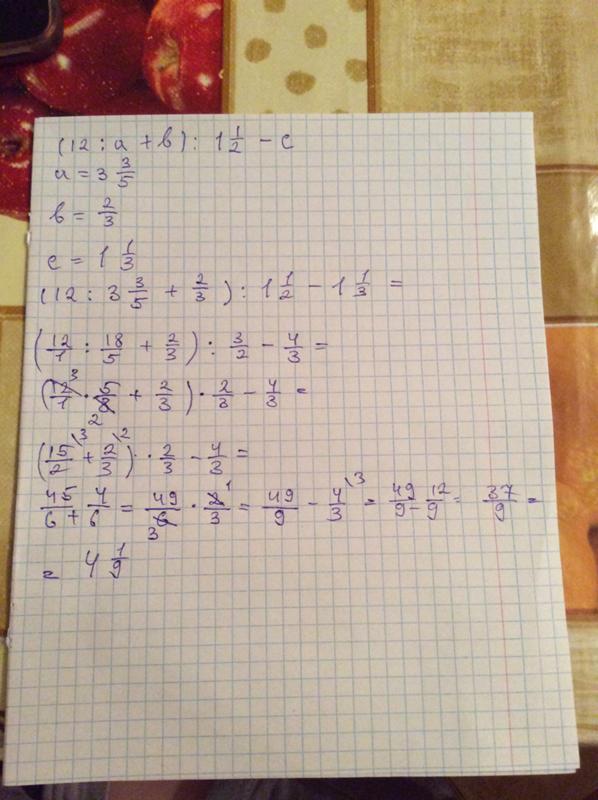 (12 : a + b) : 1 1/2 - c
a = 3 3/5
b = 2/3
c = 1 1/3
(12 : 3 3/5 + 2/3) : 1 1/2 - 1 1/3 =
(12/1 : 18/5 + 2/3) : 3/2 - 4/3 =
(12/1 3 · 5/8 2 + 2/3) · 2/3 - 4/3 =
(15/2 \3 + 2/3 \2) · 2/3 - 4/3 =
45/6 + 4/6 = 49/6 3 · 2/3 1 = 49/9 - 4/3 \3 = 49/9 - 12/9 = 37/9 =
= 4 1/9